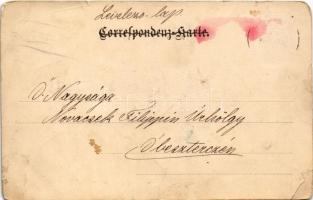 Levelező-lap
Correspondenz-Karte.
Ő Nagysága
Novacsek Filippin Úrhölgy
Óbeszterczén